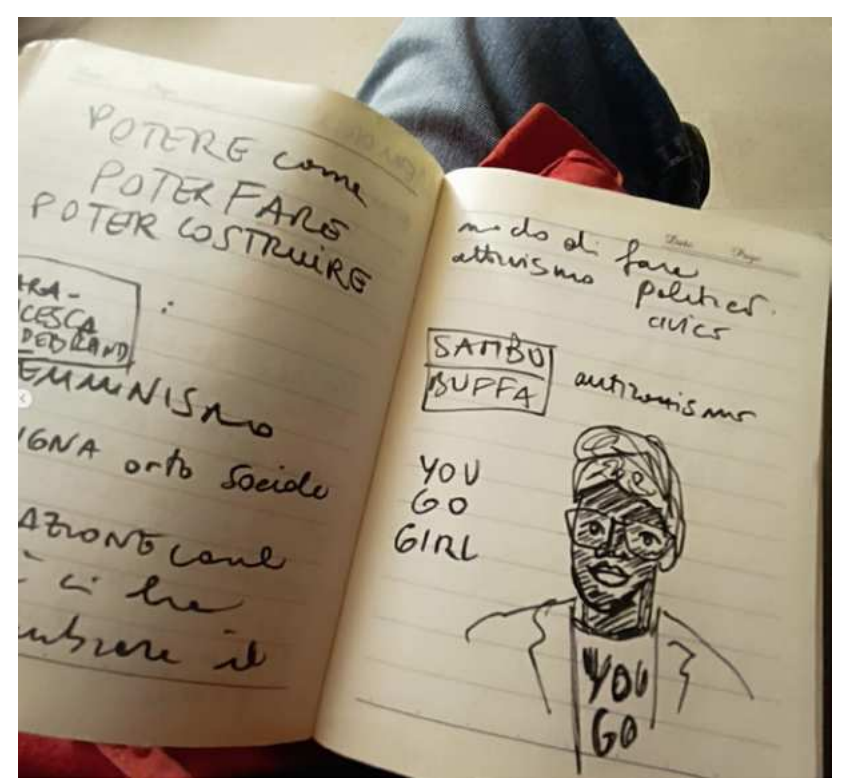 POTERE come
POTER FARE
POTER COSTRUIRE
ARA-
CESCA
DEBRAND :
EMMINISMO
IGNA orto Sociale
AZIONE come
ci ha
il
modo di fare
attivismo politico.
civico
SAMBU
BUFFA
YOU
GO
GIRL
YOU
GO